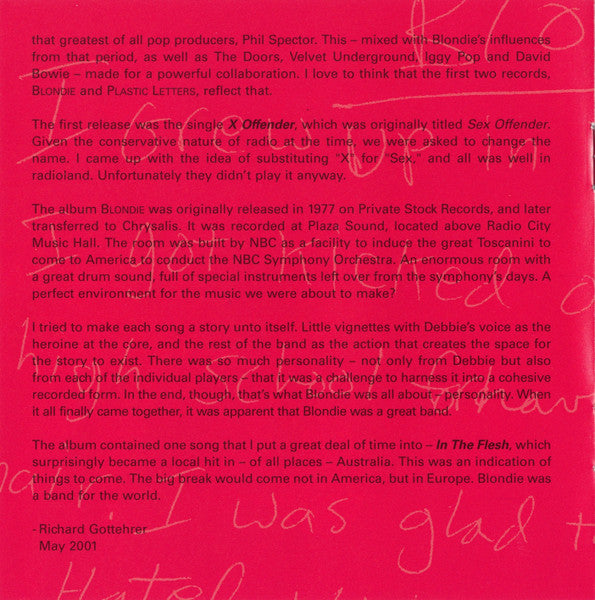 that greatest of all pop producers, Phil Spector. This – mixed with Blondie's influences
from that period, as well as The Doors, Velvet Underground, Iggy Pop and David
Bowie – made for a powerful collaboration. I love to think that the first two records,
BLONDIE and PLASTIC LETTERS, reflect that.
The first release was the single X Offender, which was originally titled Sex Offender.
Given the conservative nature of radio at the time, we were asked to change the
name. I came up with the idea of substituting "X" for "Sex," and all was well in
radioland. Unfortunately they didn't play it anyway.
The album BLONDIE was originally released in 1977 on Private Stock Records, and later
transferred to Chrysalis. It was recorded at Plaza Sound, located above Radio City
Music Hall. The room was built by NBC as a facility to induce the great Toscanini to
come to America to conduct the NBC Symphony Orchestra. An enormous room with
a great drum sound, full of special instruments left over from the symphony's days. A
perfect environment for the music we were about to make?
I tried to make each song a story unto itself. Little vignettes with Debbie's voice as the
heroine at the core, and the rest of the band as the action that creates the space for
the story to exist. There was so much personality – not only from Debbie but also
from each of the individual players – that it was a challenge to harness it into a cohesive
recorded form. In the end, though, that's what Blondie was all about – personality. When
it all finally came together, it was apparent that Blondie was a great band.
The album contained one song that I put a great deal of time into – In The Flesh, which
surprisingly became a local hit in – of all places – Australia. This was an indication of
things to come. The big break would come not in America, but in Europe. Blondie was
a band for the world.
- Richard Gottehrer
May 2001
I grew up in
I got kicked o
high school
I was glad t